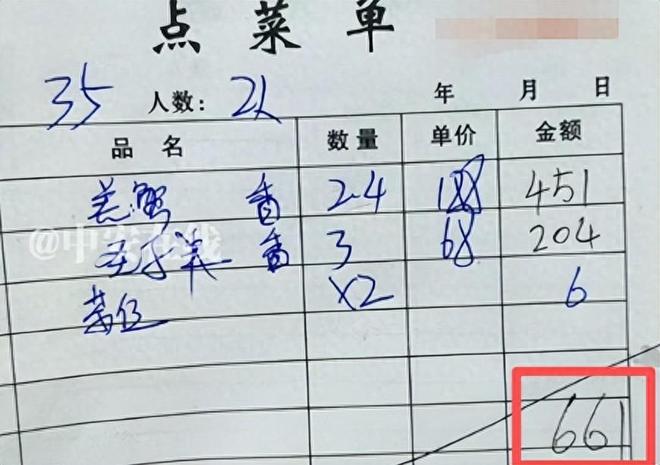 点菜单
35 人数: 2人 年 月 日
品名 数量 单价 金额
羔蟹 香 2.4 188 451
香 3 68 204
茶位 X2 6
661